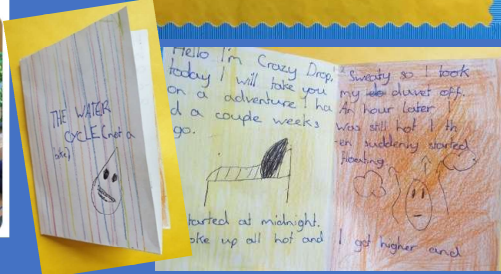 THE WATER
CYCLE (not a
Hello I'm Crazy Drop,
today I will take you
on a adventure I ha
d a couple weeks
go.
tarted at midnight.
oke up all hot and
Sweaty so I took
my duvet off.
An hour later
was still hot I th
en suddenly started
floating
I got higher and